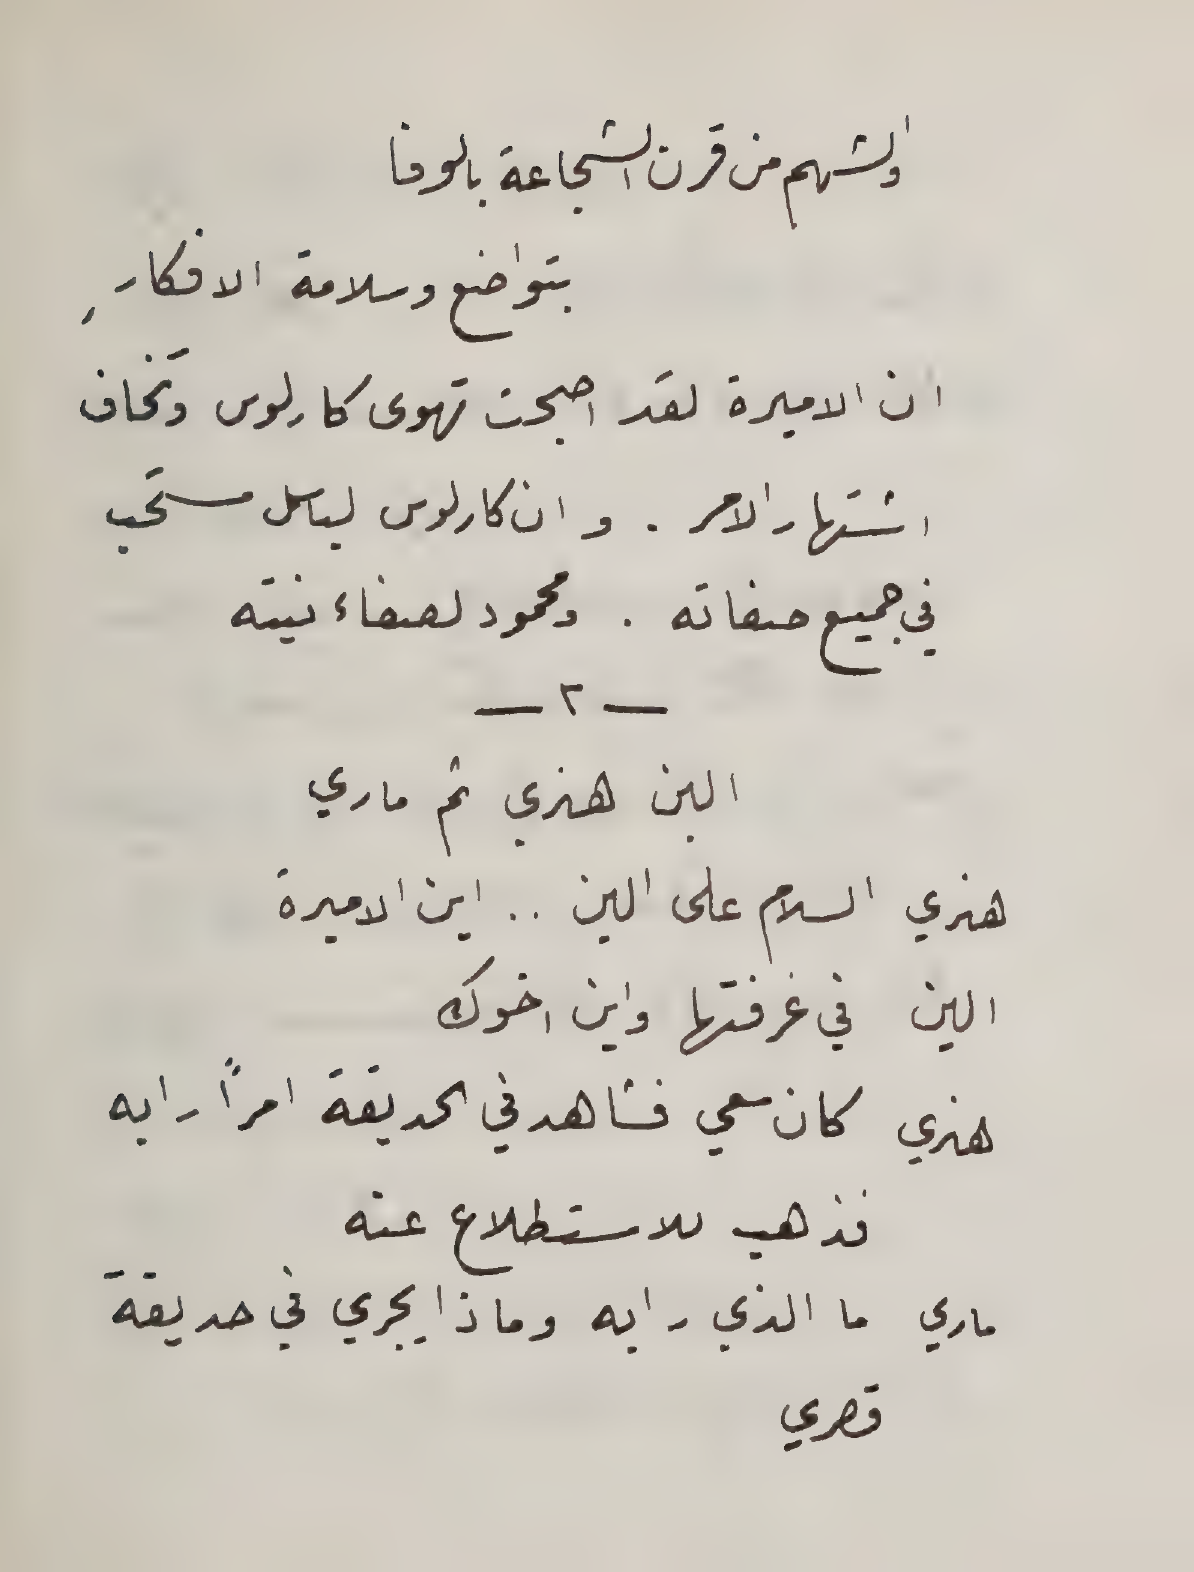 والشهم من قرن الشجاعة بالوفا
بتواضع وسلامة الافكار
ان الاميرة لقد اصبحت تهوى كارلوس وتخاف
اشتهار الامر . وان كارلوس لباسل مستحب
في جميع صفاته . ومحمود لصفاء نيته
— ٢ —
الين هنري ثم ماري
هنري السلام على الين .. اين الاميرة
الين في غرفتها واين اخوك
هنري كان معي فشاهد في الحديقة امراً رابه
فذهب للاستطلاع عنه
ماري ما الذي رابه وماذا يجري في حديقة
قصري